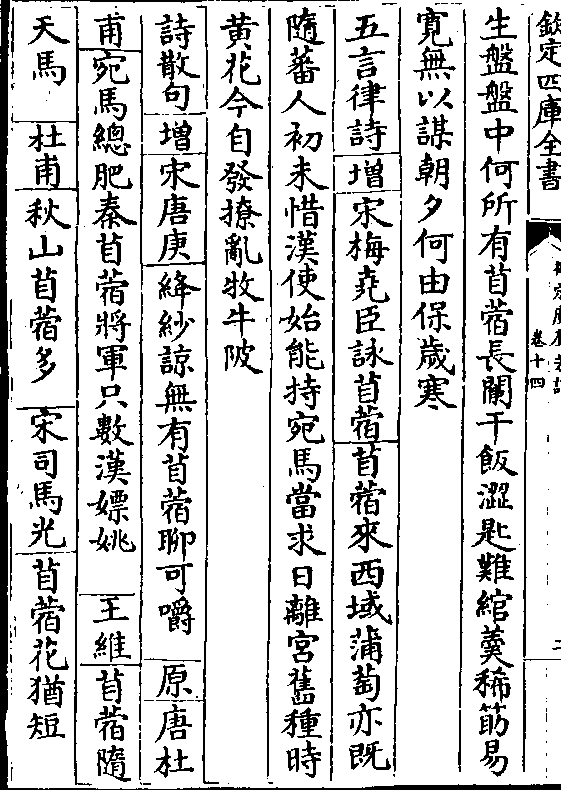 欽定四庫全書
卷十四
生盤盤中何所有苜蓿長闌干飯澀匙難綰羹稀筯易
寛無以謀朝夕何由保歲寒
五言律詩增宋梅堯臣詠苜蓿苜蓿來西域蒲萄亦既
隨蕃人初未惜漢使始能持宛馬當求日離宮舊種時
黄花今自發撩亂牧牛陂
詩散句增宋唐庚絳紗諒無有苜蓿聊可嚼 原唐杜
甫宛馬總肥秦苜蓿將軍只數漢嫖姚 王維苜蓿隨
天馬 杜甫秋山苜蓿多 宋司馬光苜蓿花猶短